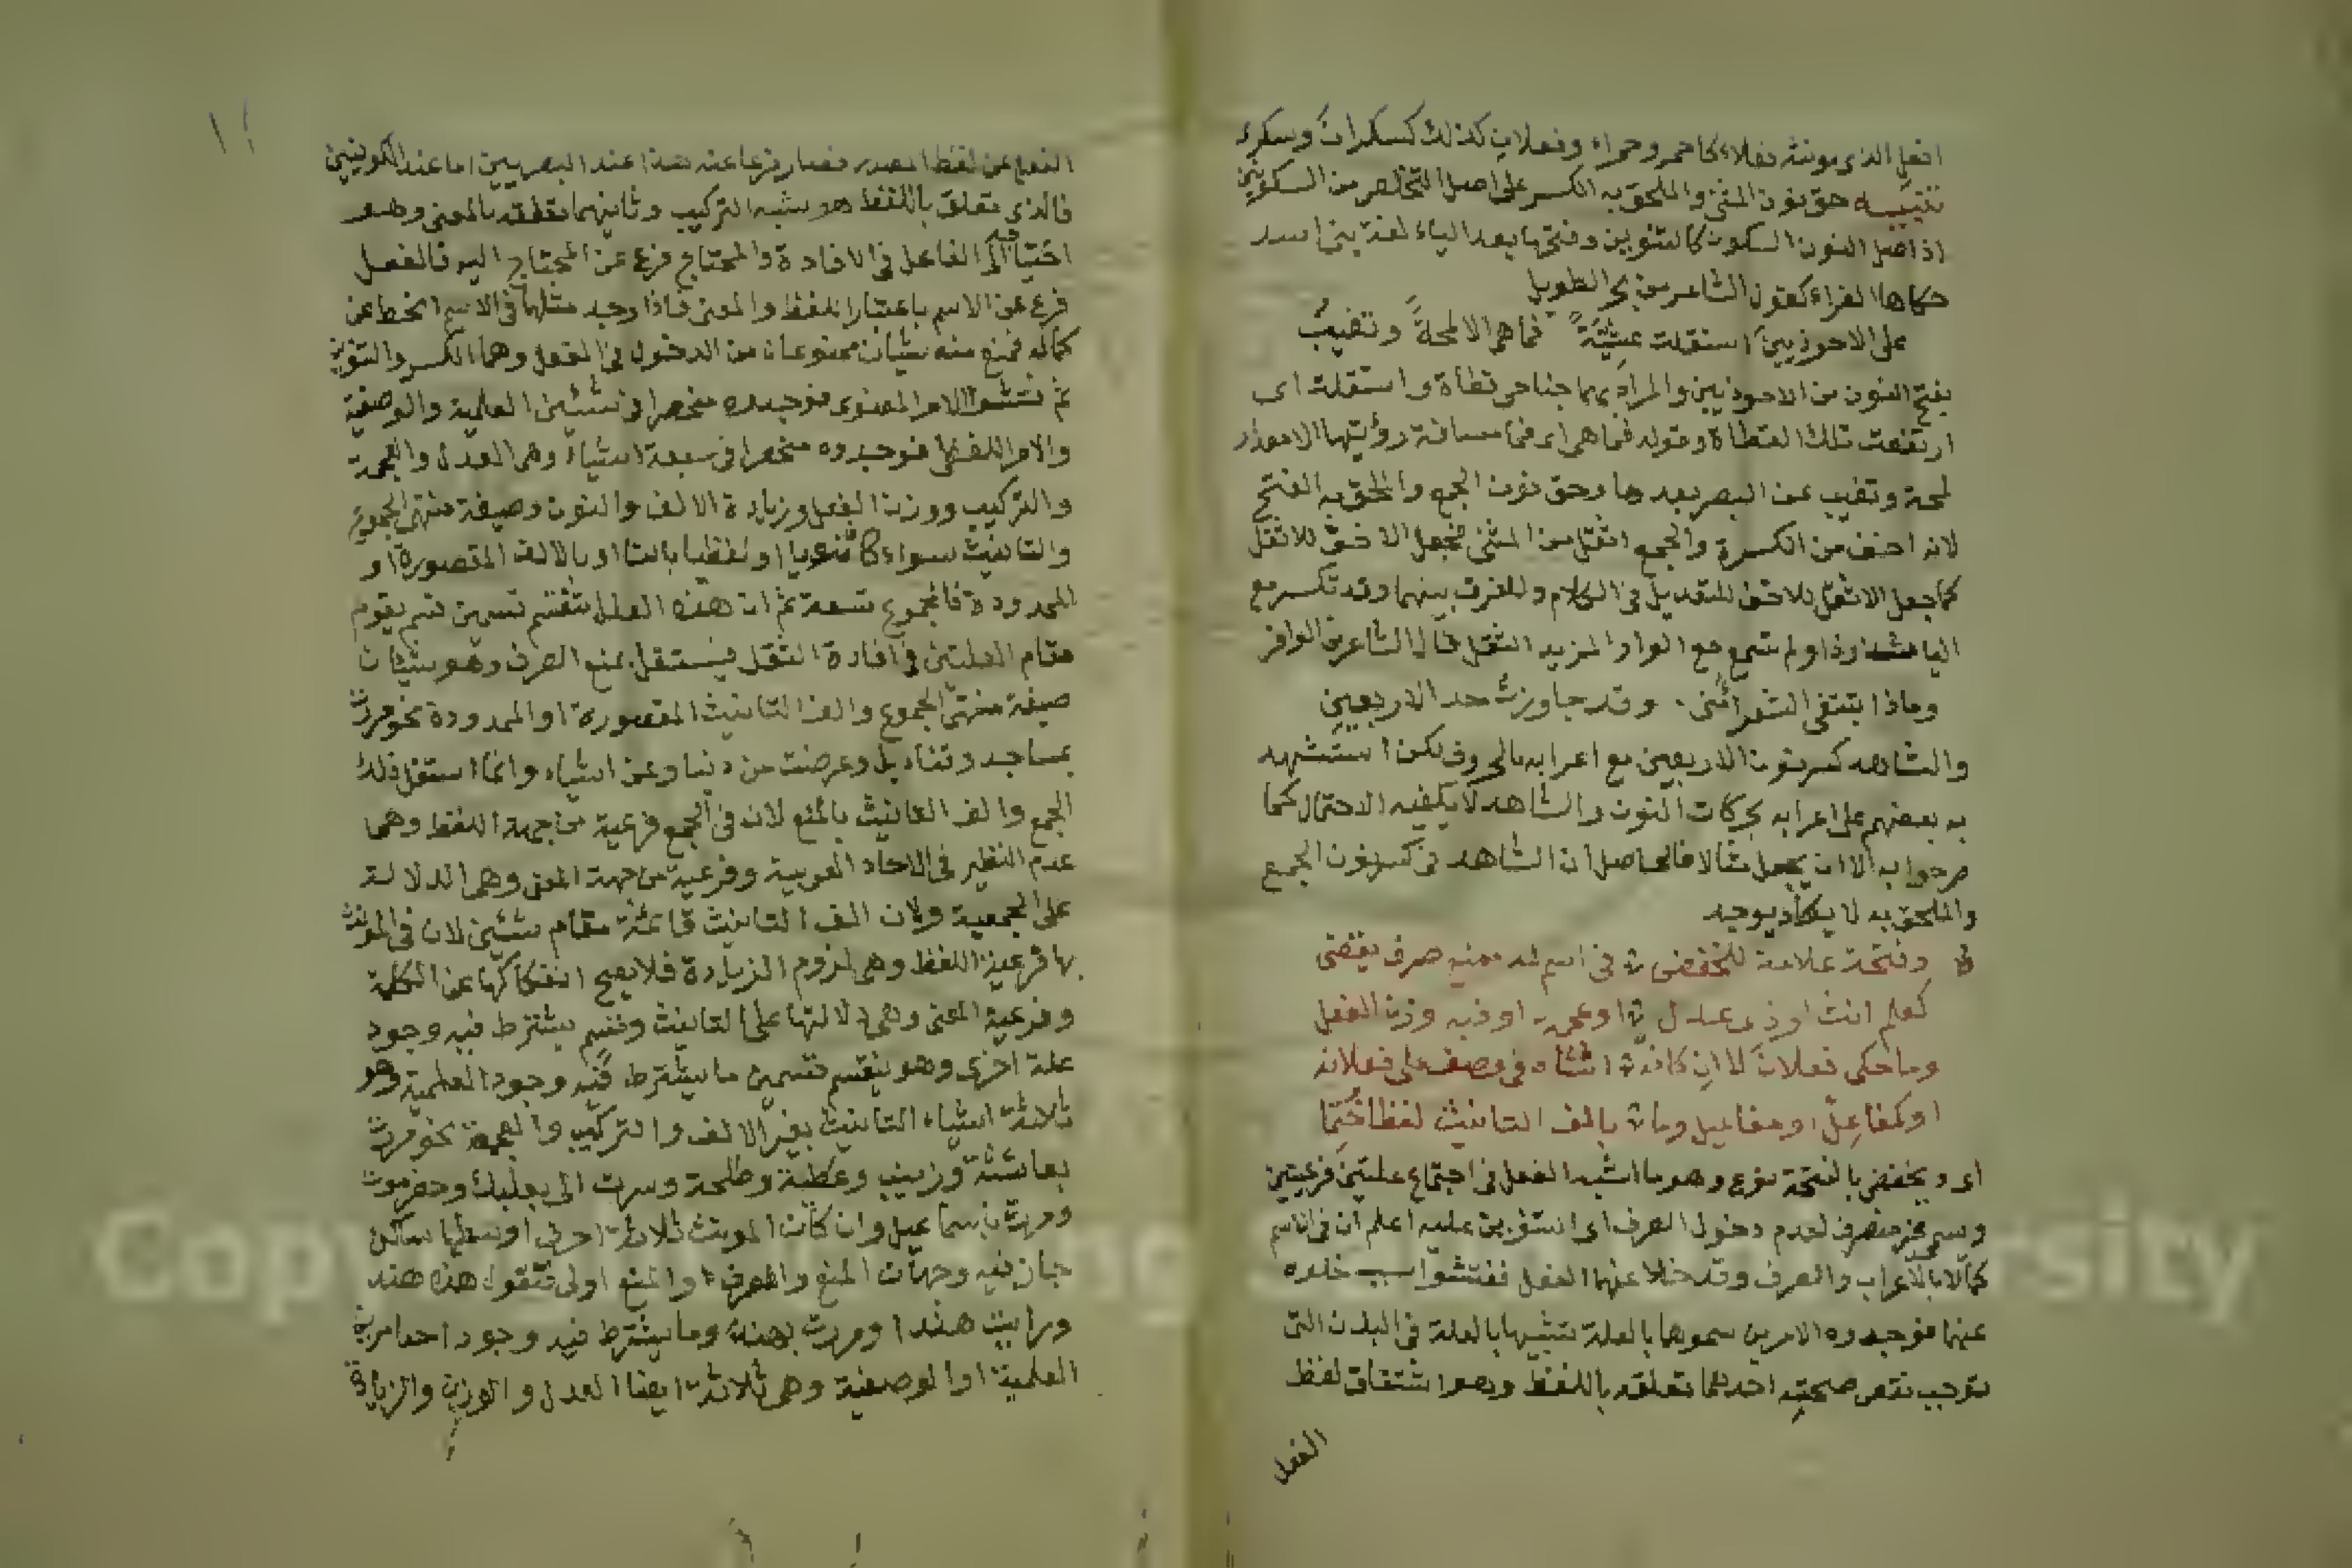 افعل الذى مونثه فعلاء كاحمر وحمراء وفعلان كذلك كسكران وسكرى
تنبيه حق نون المثنى والملحق به الكسر على اصل التخلص من السكونين
اذ اصل النون السكون كالتنوين وفتحها بعد الياء لغة بنى اسد
حكاها الفراء كقول الشاعر من بحر الطويل
على الاحوذيين استقلت عشية فما هى الا لمحة وتغيب
بفتح النون من الاحوذيين والمراد بهما جناحى قطاة واستقلت اى
ارتفعت تلك القطاة وقوله فما هى اى فما مسافة رؤيتها الا مقدار
لمحة وتغيب عن البصر بعدها وحق نون الجمع والملحق به الفتح
لانه اخف من الكسرة والجمع اثقل من المثنى فجعل الاخف للاثقل
كما جعل الاثقل للاخف للتعديل فى الكلام وللفرق بينهما وقد تكسر مع
اليا شذوذا ولم تسمع مع الواو لمزيد الثقل قال الشاعر من الوافر
وماذا تبتغى الشعراء منى وقد جاوزت حد الاربعين
والشاهد كسر نون الاربعين مع اعرابه بالحروف لكن استشهد
به بعضهم على اعرابه بحركات النون والشاهد لا يكفيه الاحتمال كما
صرحوا به الا ان يجعل مثالا فالحاصل ان الشاهد فى كسر نون الجمع
والملحق به لا يكاد يوجد
ص وفتحة علامة للخفض فى اسم له منع صرف يقتضى
كعلم انث او ذى عدل او عجمة او فيه وزن الفعل
وما حكى فعلان لا ان كان انثاه فى وصف على فعلانه
او كمفاعل او مفاعيل وما بالف التانيث لفظا ختما
اى ويخفض بالفتحة نوع وهو ما اشبه الفعل فى اجتماع علتين فرعيتين
وسمى غير منصرف لعدم دخول الصرف اى التنوين عليه اعلم ان فى الاسم
كمالا بالاعراب والصرف وقد خلا عنهما الفعل ففتشوا سبب خلوه
عنهما فوجدوه الامرين سموهما بالعلة تشبيها بالعلة فى البدن التى
توجب نقص صحته احدهما تعلقه باللفظ وهو اشتقاق لفظ
الفعل
الفعل عن لفظ المصدر فصار فرعا عنه هذا عند البصريين اما عند الكوفيين
فالذى تعلق باللفظ هو شبه التركيب وثانيهما تعلقه بالمعنى وهو
احتياجه الى الفاعل فى الافادة والمحتاج فرع عن المحتاج اليه فالفعل
فرع عن الاسم باعتبار اللفظ والمعنى فاذا وجد مثلهما فى الاسم انحط عن
كماله فمنع منه شيئان ممنوعان من الدخول فى الفعل وهما الكسر والتنوين
ثم فتشوا الامر المعنوى فوجدوه منحصرا فى شيئين العلمية والوصفية
والامر اللفظى فوجدوه منحصرا فى سبعة اشياء وهى العدل والعجمة
والتركيب ووزن الفعل وزيادة الالف والنون وصيغة منتهى الجموع
والتانيث سواء كان معنويا او لفظيا بالتا او بالالف المقصورة او
الممدودة فالمجموع تسعة ثم ان هذه العلل تنقسم قسمين قسم يقوم
مقام العلتين فى افادة الثقل فيستقل بمنع الصرف وهو شيئان
صيغة منتهى الجموع والف التانيث المقصورة او الممدودة نحو مررت
بمساجد وقناديل وعرضت من دنيا وعن اشياء وانما استقل ذلك
الجمع والف التانيث بالمنع لان فى الجمع فرعية من جهة اللفظ وهى
عدم النظير فى الاحاد العربية وفرعية من جهة المعنى وهى الدلالة
على الجمعية ولان الف التانيث قائمة مقام شيئين لان فى المونث
بها فرعية اللفظ وهى لزوم الزيادة فلا يصح انفكاكها عن الكلمة
وفرعية المعنى وهى دلالتها على التانيث وقسم يشترط فيه وجود
علة اخرى وهو ينقسم قسمين ما يشترط فيه وجود العلمية وهو
ثلاثة اشياء التانيث بغير الالف والتركيب والعجمة نحو مررت
بعائشة وزينب وعطية وطلحة وسرت الى بعلبك وحضرموت
ومررت باسماعيل وان كان المونث ثلاثة احرف اوسطها ساكن
جاز فيه وجهان المنع والصرف والمنع اولى فتقول هذه هند
ورايت هندا ومررت بهند وما يشترط فيه وجود احد امرين
العلمية او الوصفية وهى ثلاثة ايضا العدل والوزن والزيادة
Copyright © King Saud University